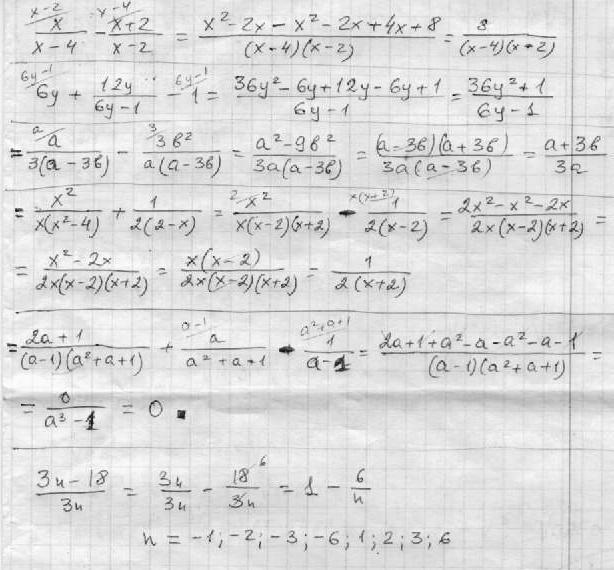 x-2 x-4
x/(x-4) - (x+2)/(x-2) = (x²-2x-x²-2x+4x+8)/((x-4)(x-2)) = 8/((x-4)(x-2))
6y-1 6y-1
6y + 12y/(6y-1) - 1 = (36y²-6y+12y-6y+1)/(6y-1) = (36y²+1)/(6y-1)
a 3
= a/(3(a-3b)) - 3b²/(a(a-3b)) = (a²-9b²)/(3a(a-3b)) = ((a-3b)(a+3b))/(3a(a-3b)) = (a+3b)/(3a)
2 x(x+2)
= x²/(x(x²-4)) + 1/(2(2-x)) = x²/(x(x-2)(x+2)) - 1/(2(x-2)) = (2x²-x²-2x)/(2x(x-2)(x+2)) =
= (x²-2x)/(2x(x-2)(x+2)) = (x(x-2))/(2x(x-2)(x+2)) = 1/(2(x+2))
a-1 a²+a+1
= (2a+1)/((a-1)(a²+a+1)) + a/(a²+a+1) - 1/(a-1) = (2a+1+a²-a-a²-a-1)/((a-1)(a²+a+1)) =
= 0/(a³-1) = 0.
6
(3n-18)/(3n) = 3n/(3n) - 18/(3n) = 1 - 6/n
n = -1; -2; -3; -6; 1; 2; 3; 6